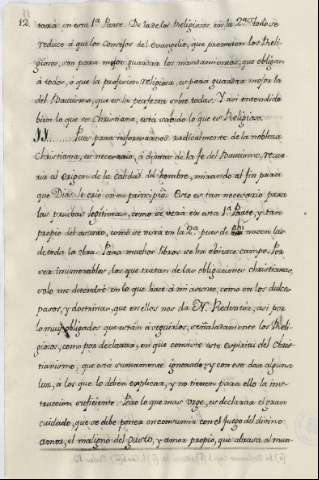 12. tará en esta 1ª Parte. De la de los Religiosos, en la 2ª. Todo se
reduce á que los Consejos del Evangelio, que prometen los Reli-
giosos, son para mejor guardar los mandamientos, que obligan
á todos, ó que la profesion religiosa, es para guardar mejor la
del Bautismo, que es la perfecta sobre todas. Y asi entendido
bien lo que es Christiano, está sabido lo que es Religioso.
Pues para informarnos radicalmente de la nobleza
Christiana, es necesario, á demas de la fe del Bautismo,
ria al origen de la calidad del hombre, mirando al fin para
que Dios le crió como principio. Esto es tan necesario para
las pruebas legitimas, como se verá en esta 1ª Parte, y tan
propio del asunto, como se verá en la 2ª pues de
de toda la obra. Para muchos libros se ha abierto campo. Por
ser innumerables, los que tratan de las obligaciones christianas,
solo me detendré en lo que hace á mi intento, como en los dulces
pasos, y doctrinas, que en ellos nos da N. Redentor, asi por
lo muy obligados que están á seguirlos, señaladamente los Reli-
giosos, como por declarar, en que consiste este espiritu del Chris-
tianismo, que está sumamente ignorado; y con eso dar alguna
luz, á los que lo deben explicar, y no tienen para ello la ins-
truccion suficiente. Pero lo que mas urge, es declarar el gran
cuidado, que se debe poner en consumir con el fuego del divino
amor, el maligno del gusto, y amor propio, que abrasa al mun-